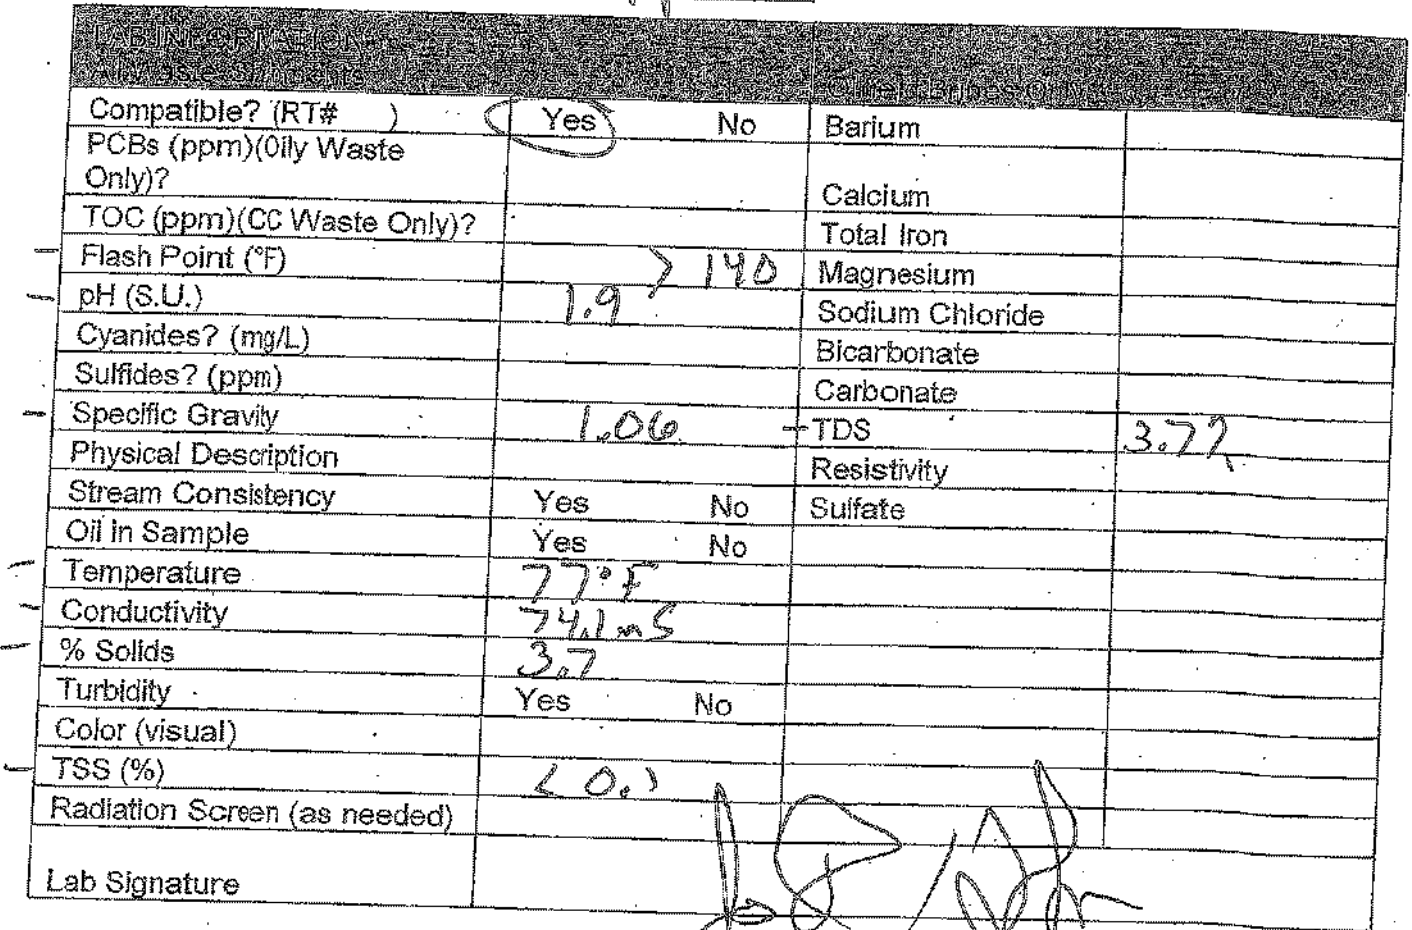 LAB INFORMATION
All Waste Shipments
Compatible? (RT# ) Yes No Barium
PCBs (ppm)(Oily Waste
Only)? Calcium
TOC (ppm)(CC Waste Only)? Total Iron
Flash Point (°F) > 140 Magnesium
pH (S.U.) 1.9 Sodium Chloride
Cyanides? (mg/L) Bicarbonate
Sulfides? (ppm) Carbonate
Specific Gravity 1.06 TDS
Physical Description Resistivity
Stream Consistency Yes No Sulfate
Oil in Sample Yes No
Temperature 77°F
Conductivity 74.1 mS
% Solids 3.7
Turbidity Yes No
Color (visual)
TSS (%) < 0.1
Radiation Screen (as needed)
Lab Signature